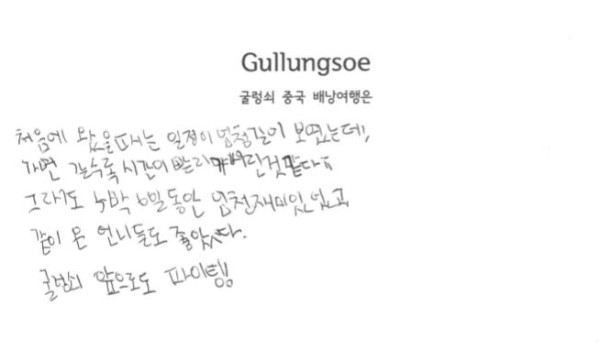 Gullungsoe
굴렁쇠 중국 배낭여행은
처음에 왔을때는 일정이 엄청길어 보였는데,
가면 갈수록 시간이 빨리 지나간것같다ㅠ
그래도 5박 6일동안 엄청재미있었고,
같이 온 언니들도 좋았다.
굴렁쇠 앞으로도 파이팅